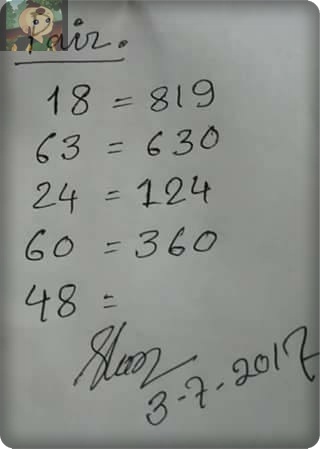 Pair.
18 = 819
63 = 630
24 = 124
60 = 360
48 =
3-7-2017